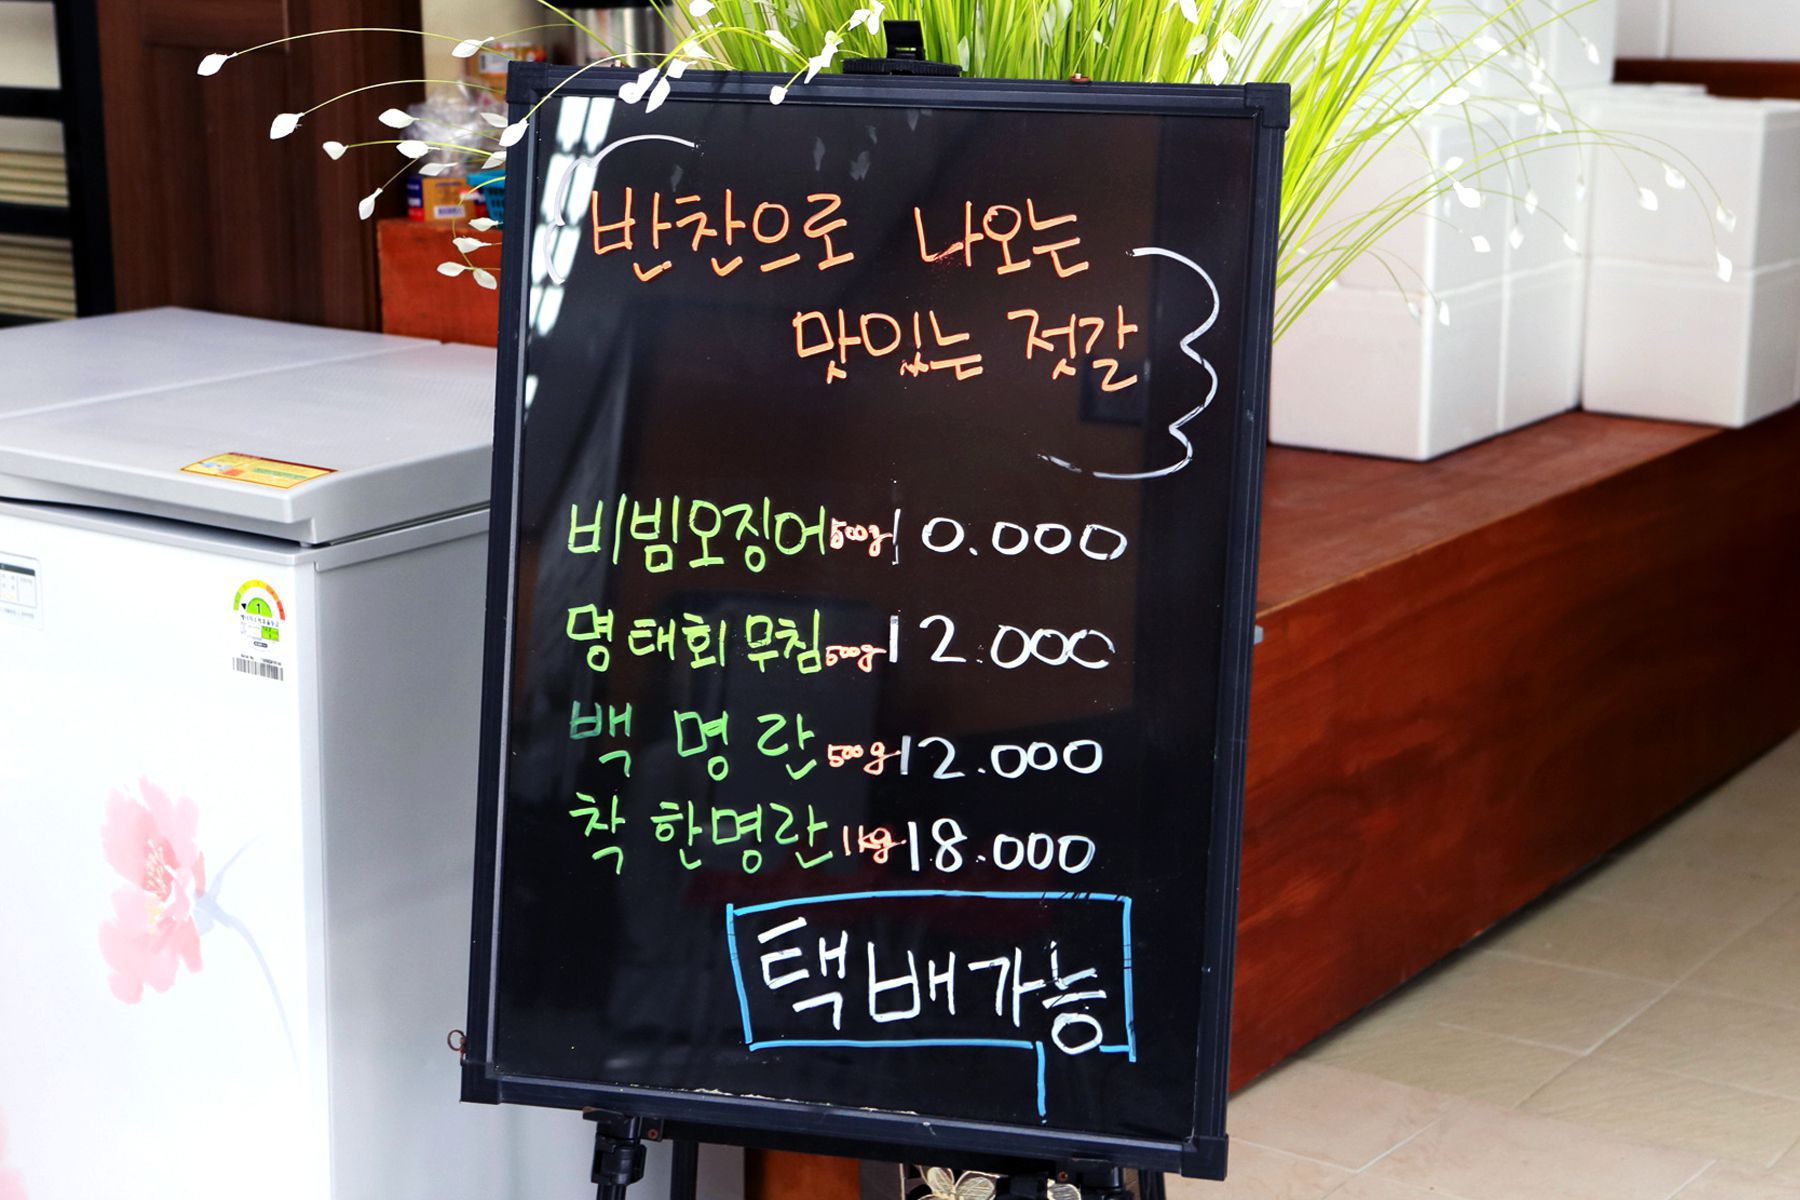 반찬으로 나오는
맛있는 젓갈
비빔오징어 500g 10.000
명태회무침 500g 12.000
백명란 500g 12.000
착한명란 1kg 18.000
택배가능